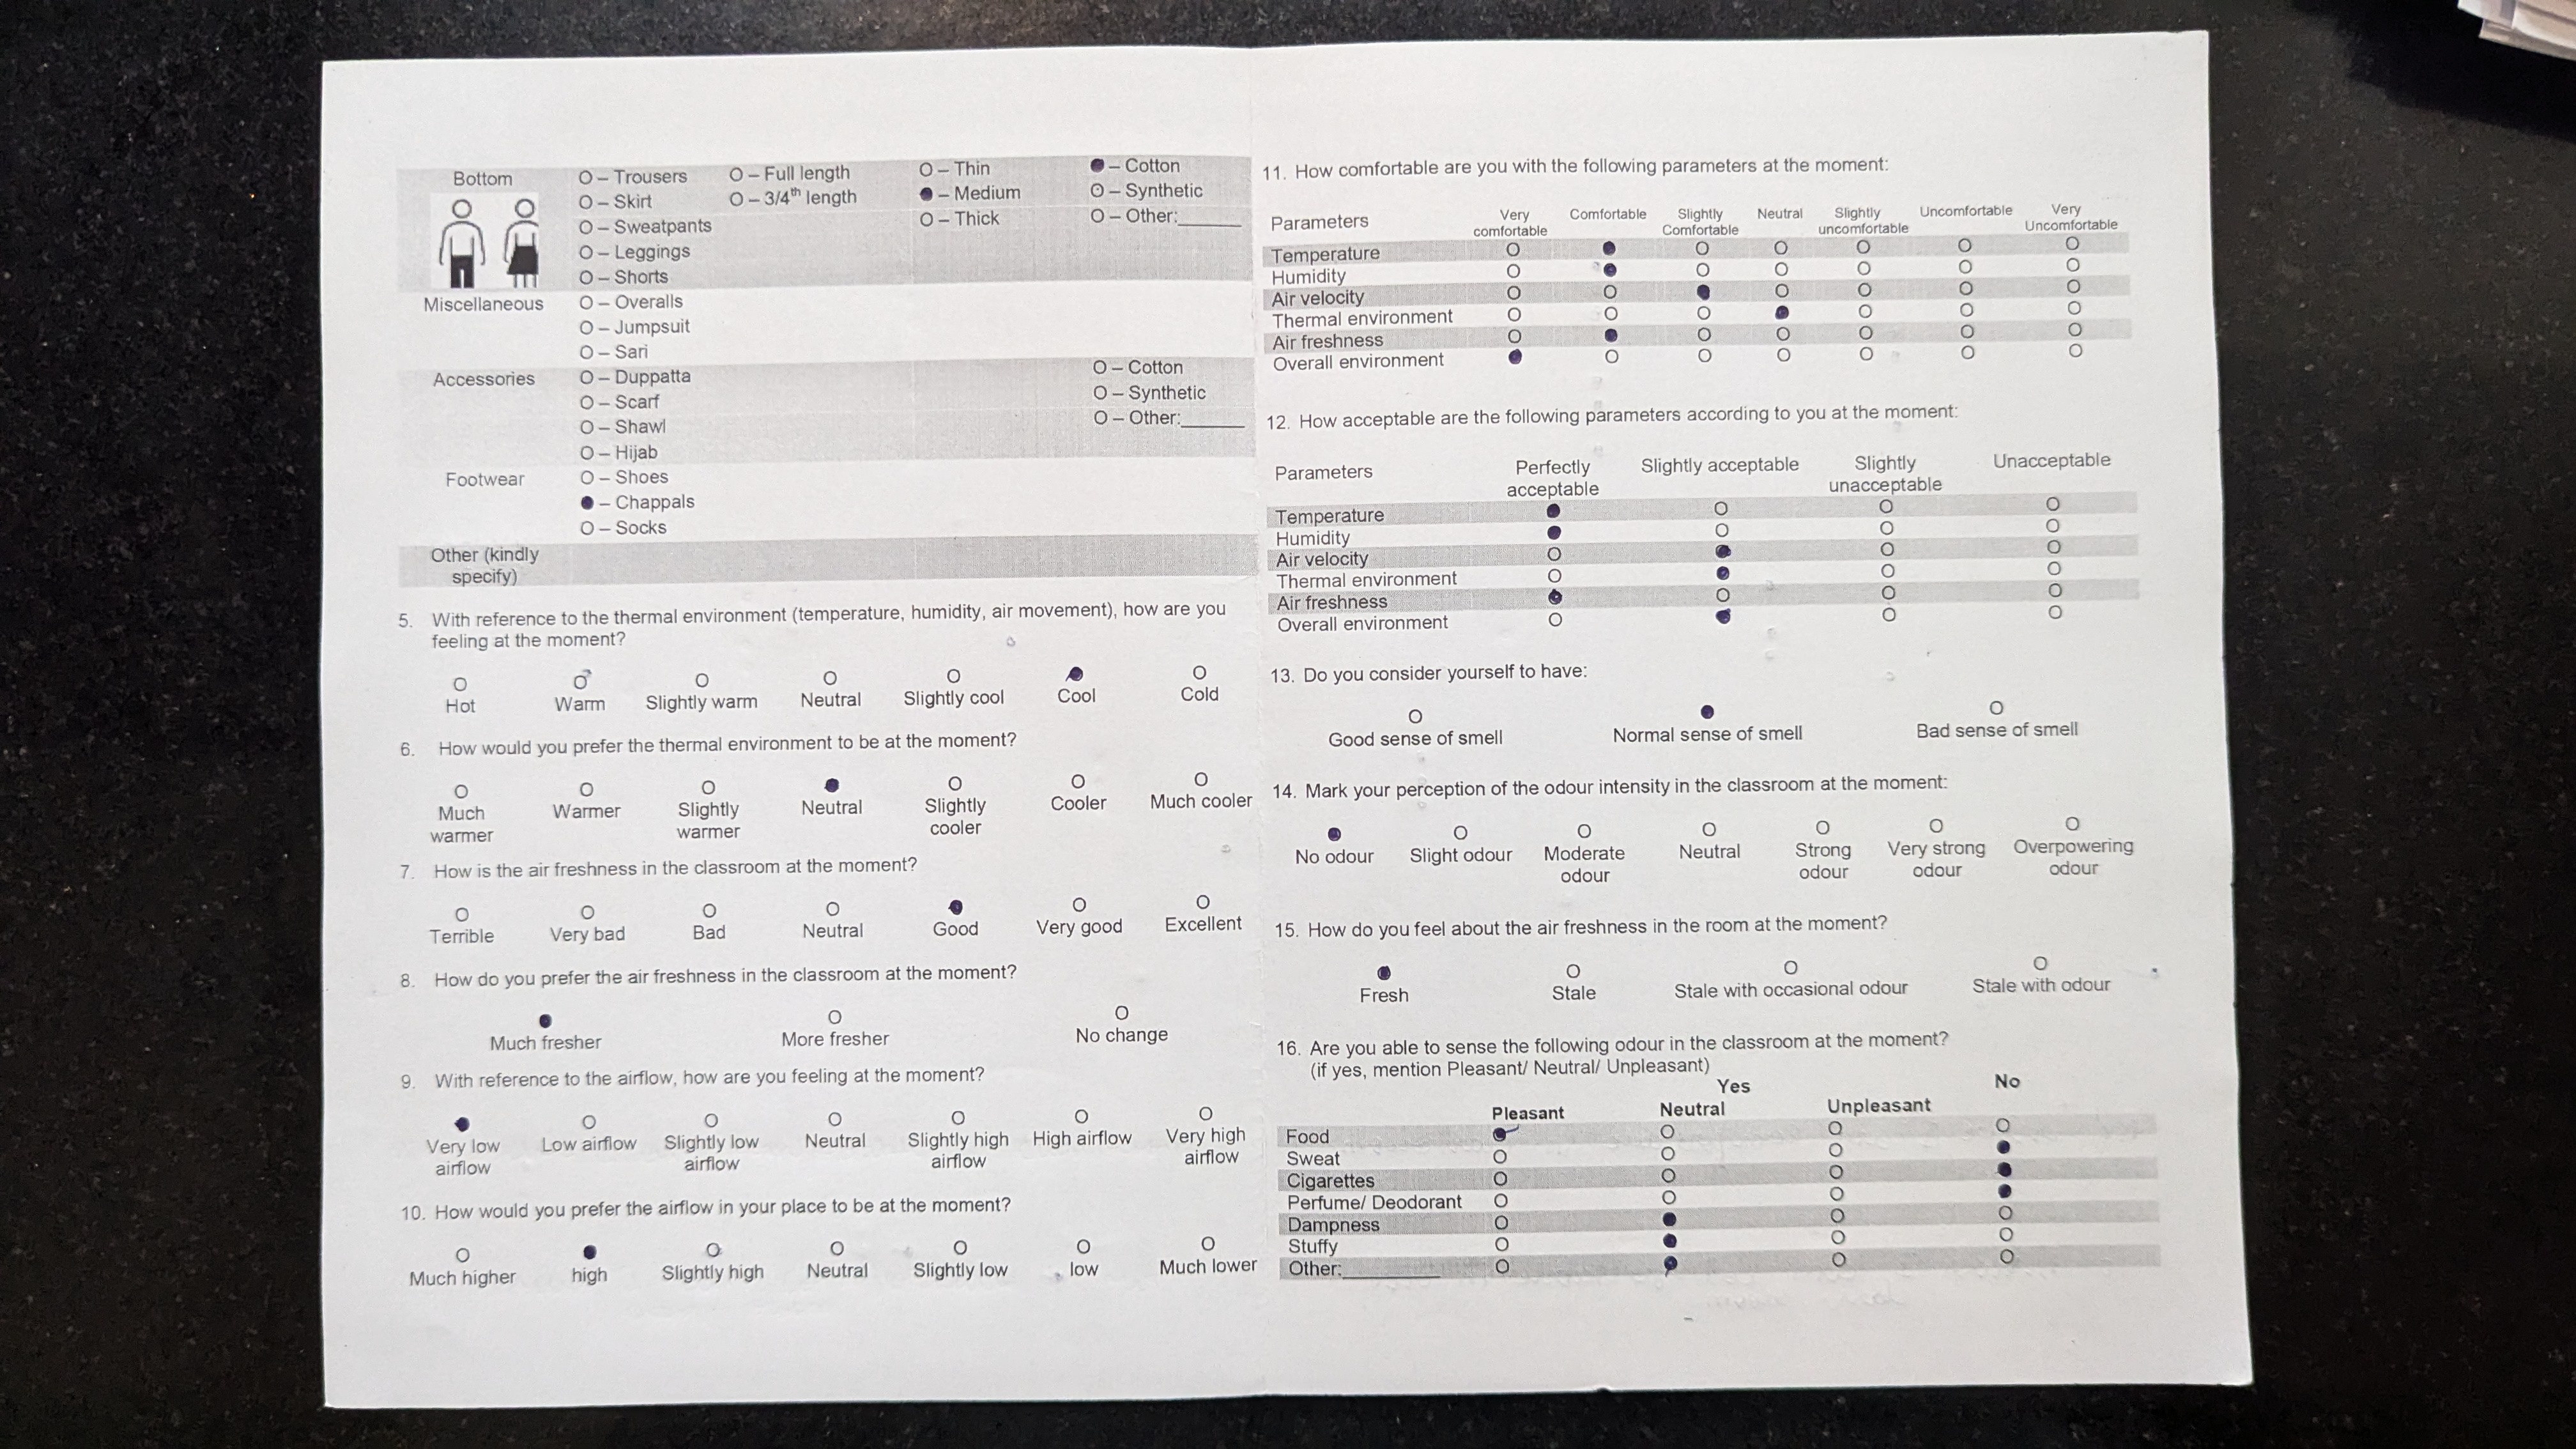 Bottom
O – Trousers
O – Skirt
O – Sweatpants
O – Leggings
O – Shorts
O – Full length
O – 3/4th length
O – Thin
● – Medium
O – Thick
● – Cotton
O – Synthetic
O – Other:______
Miscellaneous
O – Overalls
O – Jumpsuit
O – Sari
Accessories
O – Duppatta
O – Scarf
O – Shawl
O – Hijab
O – Cotton
O – Synthetic
O – Other:______
Footwear
O – Shoes
● – Chappals
O – Socks
Other (kindly
specify)
5. With reference to the thermal environment (temperature, humidity, air movement), how are you
feeling at the moment?
Hot Warm Slightly warm Neutral Slightly cool Cool Cold
6. How would you prefer the thermal environment to be at the moment?
Much warmer Warmer Slightly warmer Neutral Slightly cooler Cooler Much cooler
7. How is the air freshness in the classroom at the moment?
Terrible Very bad Bad Neutral Good Very good Excellent
8. How do you prefer the air freshness in the classroom at the moment?
Much fresher More fresher No change
9. With reference to the airflow, how are you feeling at the moment?
Very low airflow Low airflow Slightly low airflow Neutral Slightly high airflow High airflow Very high airflow
10. How would you prefer the airflow in your place to be at the moment?
Much higher high Slightly high Neutral Slightly low low Much lower
11. How comfortable are you with the following parameters at the moment:
Parameters Very comfortable Comfortable Slightly Comfortable Neutral Slightly uncomfortable Uncomfortable Very Uncomfortable
Temperature O ● O O O O O
Humidity O ● O O O O O
Air velocity O O ● O O O O
Thermal environment O O O ● O O O
Air freshness O ● O O O O O
Overall environment ● O O O O O O
12. How acceptable are the following parameters according to you at the moment:
Parameters Perfectly acceptable Slightly acceptable Slightly unacceptable Unacceptable
Temperature ● O O O
Humidity ● O O O
Air velocity O ● O O
Thermal environment O ● O O
Air freshness ● O O O
Overall environment O ● O O
13. Do you consider yourself to have:
Good sense of smell Normal sense of smell Bad sense of smell
14. Mark your perception of the odour intensity in the classroom at the moment:
No odour Slight odour Moderate odour Neutral Strong odour Very strong odour Overpowering odour
15. How do you feel about the air freshness in the room at the moment?
Fresh Stale Stale with occasional odour Stale with odour
16. Are you able to sense the following odour in the classroom at the moment?
(if yes, mention Pleasant/ Neutral/ Unpleasant)
Yes No
Pleasant Neutral Unpleasant
Food ● O O O
Sweat O O O ●
Cigarettes O O O ●
Perfume/ Deodorant O O O ●
Dampness O ● O O
Stuffy O ● O O
Other:_________ O ● O O